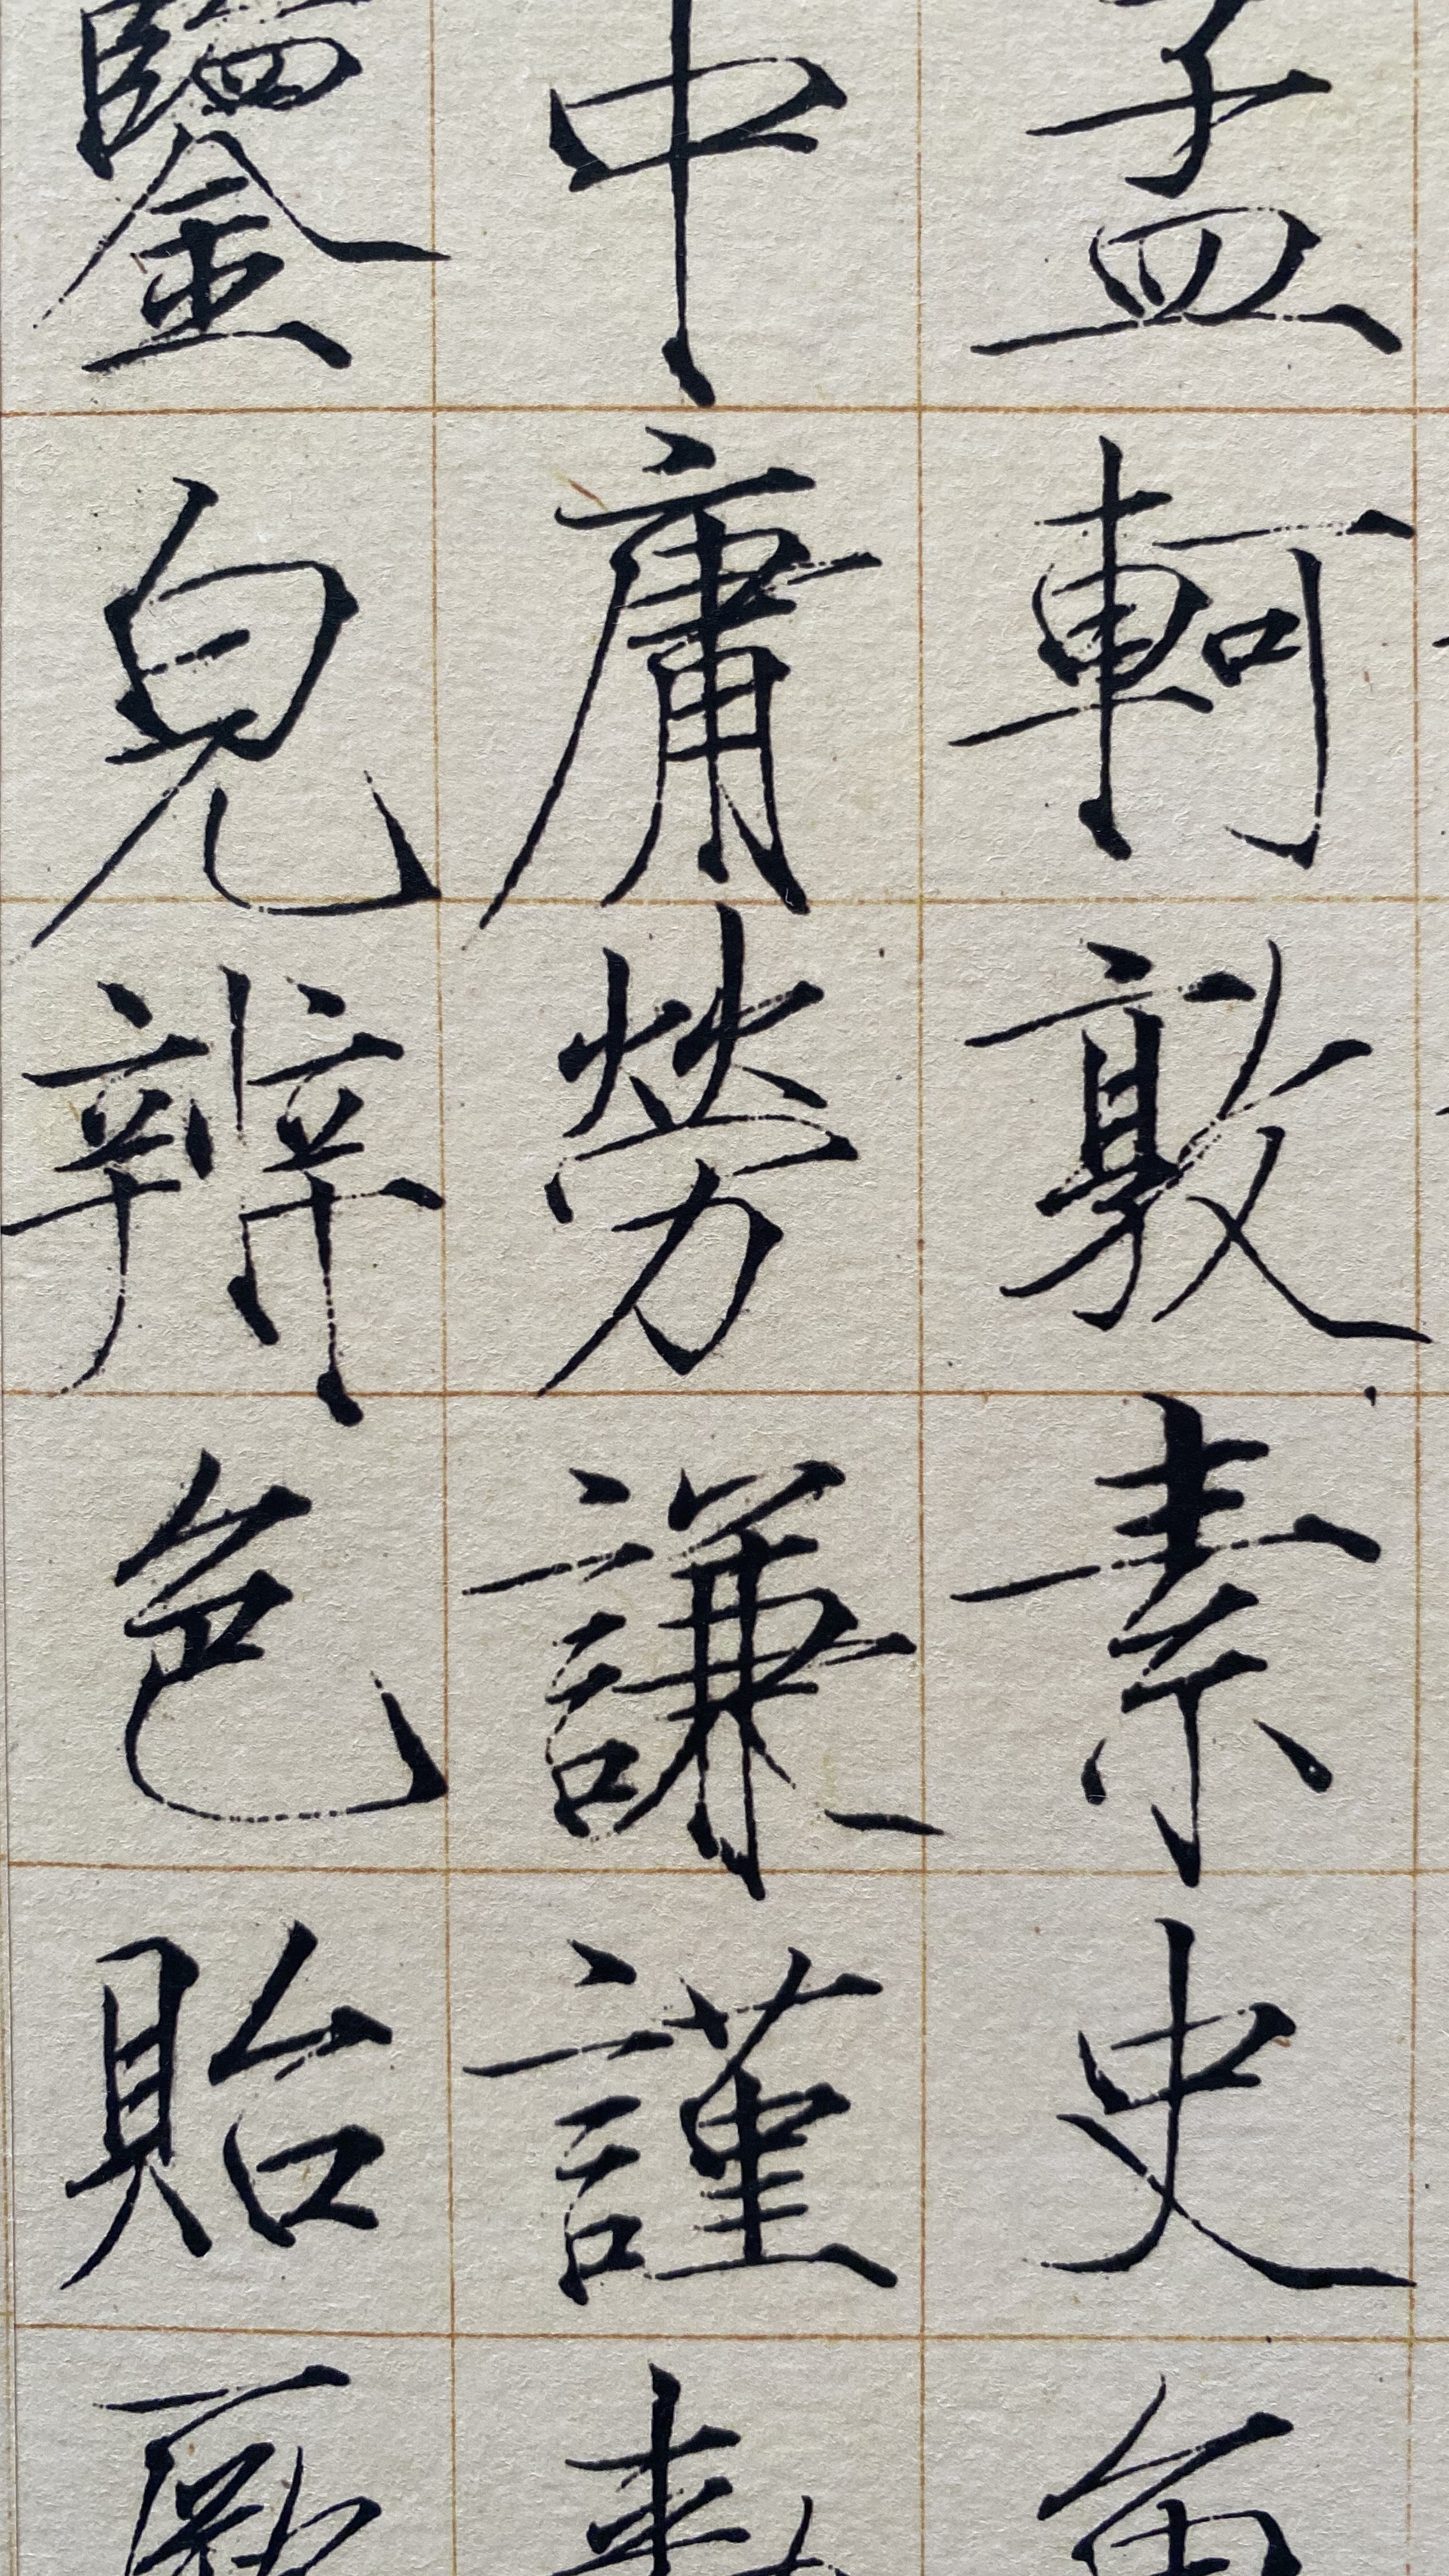 孟軻敦素史魚
中庸勞謙謹
鑒皃辨色貽厥